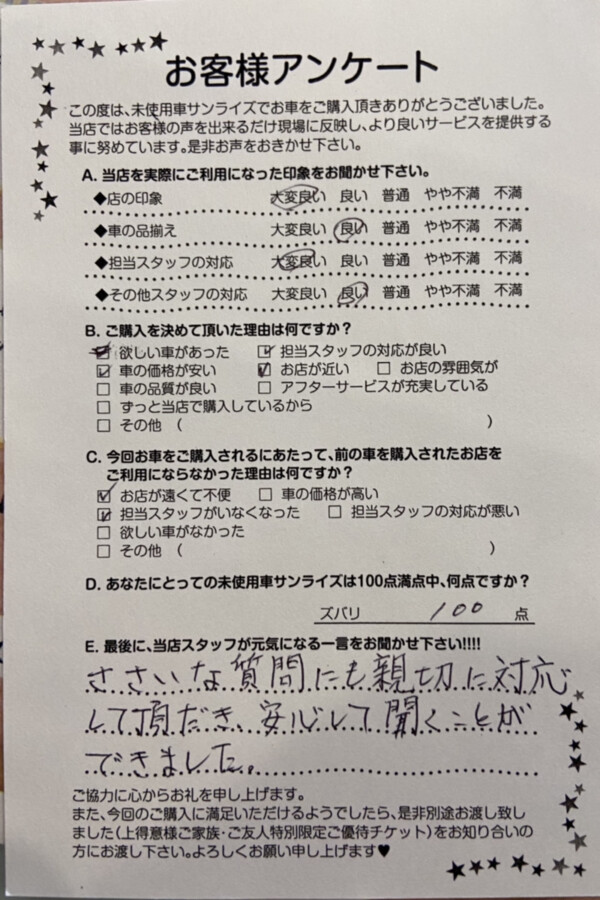 お客様アンケート
この度は、未使用車サンライズでお車をご購入頂きありがとうございました。
当店ではお客様の声を出来るだけ現場に反映し、より良いサービスを提供する
事に努めています。是非お声をおきかせ下さい。
A. 当店を実際にご利用になった印象をお聞かせ下さい。
◆店の印象 大変良い 良い 普通 やや不満 不満
◆車の品揃え 大変良い 良い 普通 やや不満 不満
◆担当スタッフの対応 大変良い 良い 普通 やや不満 不満
◆その他スタッフの対応 大変良い 良い 普通 やや不満 不満
B. ご購入を決めて頂いた理由は何ですか?
☑ 欲しい車があった ☑ 担当スタッフの対応が良い
☑ 車の価格が安い ☑ お店が近い □ お店の雰囲気が
□ 車の品質が良い □ アフターサービスが充実している
□ ずっと当店で購入しているから
□ その他 ( )
C. 今回お車をご購入されるにあたって、前の車を購入されたお店を
ご利用にならなかった理由は何ですか?
☑ お店が遠くて不便 □ 車の価格が高い
☑ 担当スタッフがいなくなった □ 担当スタッフの対応が悪い
□ 欲しい車がなかった
□ その他 ( )
D. あなたにとっての未使用車サンライズは100点満点中、何点ですか?
ズバリ 100 点
E. 最後に、当店スタッフが元気になる一言をお聞かせ下さい!!!!
ささいな質問にも親切に対応
して頂だき、安心して聞くことが
できました。
ご協力に心からお礼を申し上げます。
また、今回のご購入に満足いただけるようでしたら、是非別途お渡し致し
ました(上得意様ご家族・ご友人特別限定ご優待チケット)をお知り合いの
方にお渡し下さい。よろしくお願い申し上げます♥